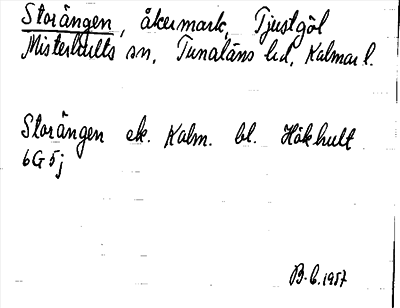 Storängen, åkermark, Tjustgöl
Misterhults sn, Tunaläns hd, Kalmar l.
Storängen ek. Kalm. bl. Hökhult
6G 5j
B-G. 1957